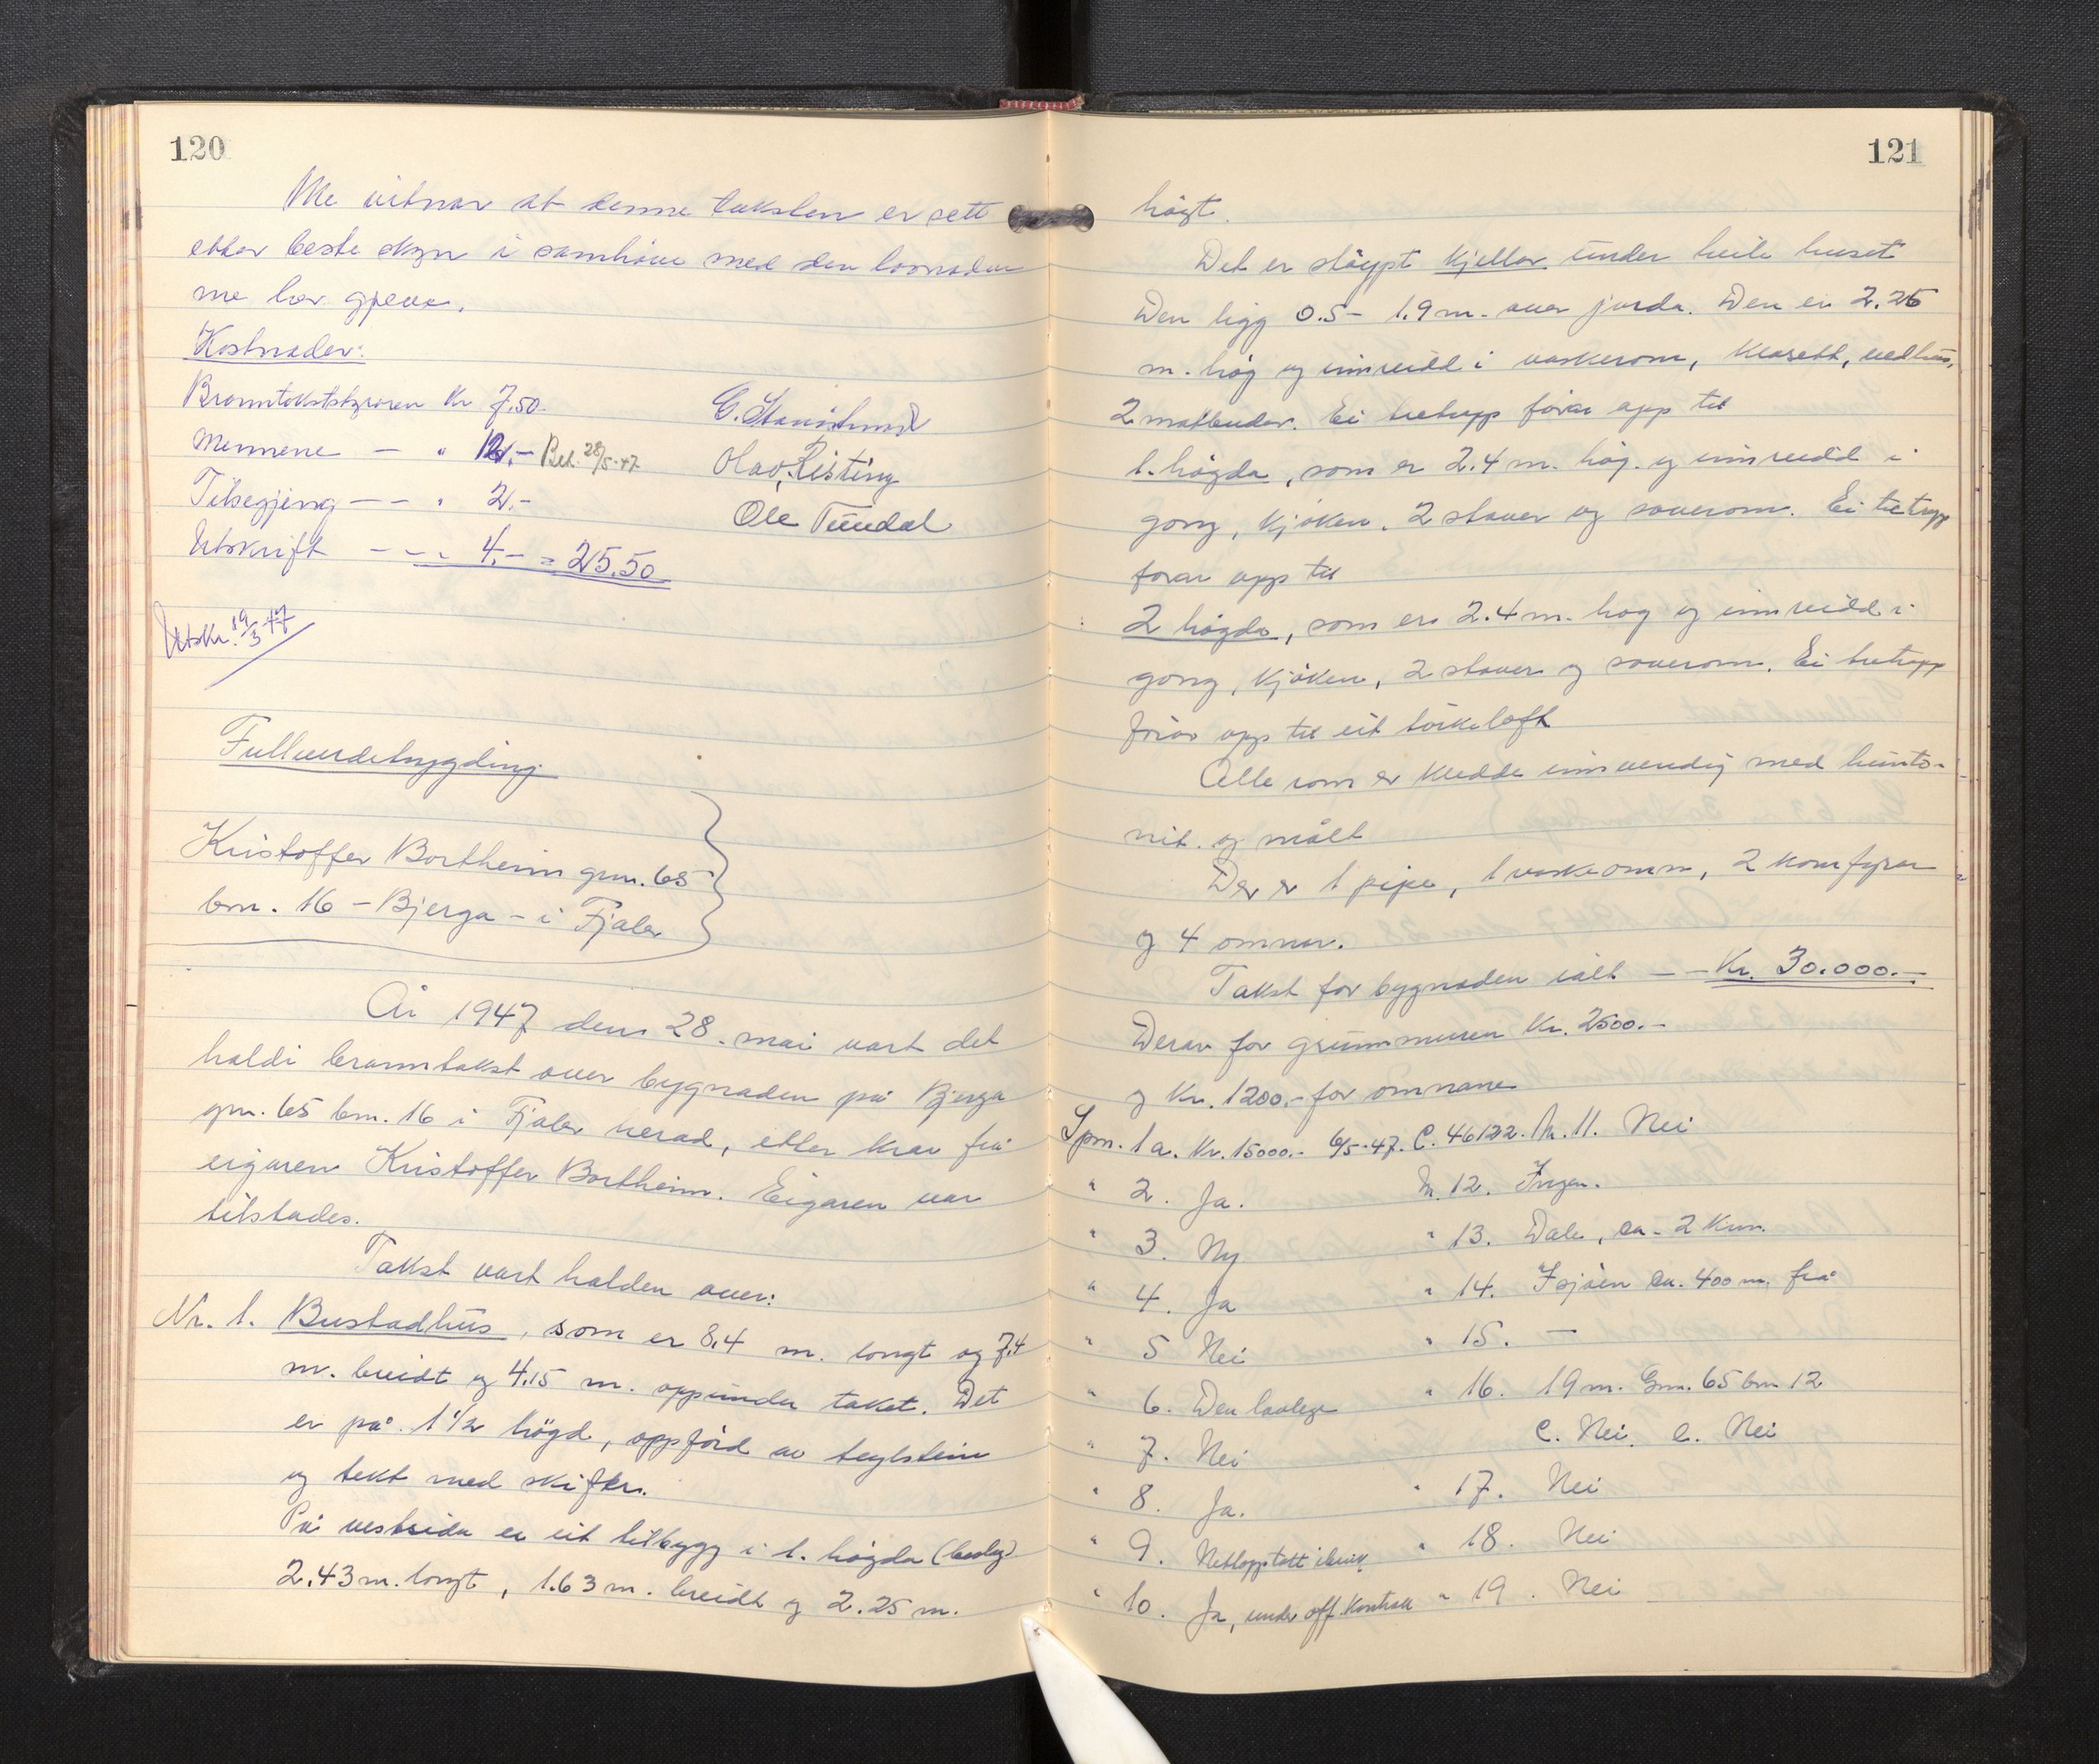 120
Me vitnar at denne taksten er sett
etter beste skyn i samhøve med den lovnaden
me har gjeve.
Kostnader:
Branntakststyraren Kr 7.50.
Mennene — " 12.- Bet. 28/5-47
Tilsegjing — — " 2.-
Utskrift — — " 4.- = 25.50
Olav Risting
Ole Tundal
Utskr. 19/3 47
Fullverdetrygding
Kristoffer Bortheim gnr. 65
bnr. 16 - Bjerga - i Fjaler
År 1947 den 28. mai vart det
haldi branntakst over bygnaden på Bjerga
gnr. 65 bnr. 16 i Fjaler herad, etter krav frå
eigaren Kristoffer Bortheim. Eigaren var
tilstades.
Takst vart halden over:
Nr. 1. Bustadhus, som er 8.4 m. langt og 7.4
m. breidt og 4.15 m. oppunder taket. Det
er på 1 1/2 högd, oppförd av teglstein
og tekt med skifer.
På vestsida er eit tilbygg i 1. högda
2.43 m. langt, 1.63 m. breidt og 2.25 m.
121
högt.
Det er stöypt kjellar under heile huset
Den ligg 0.5 - 1.9 m. over jorda. Den er 2.25
m. hög og innreidd i vaskerom, klosett, vedhus,
2 matbuder. Ei tretrapp förar opp til
1. högda, som er 2.4 m. hög og innreidd i
gong, kjöken, 2 stover og soverom. Ei tretrapp
förar opp til
2 högda, som er 2.4 m. hög og innreidd i
gong, kjöken, 2 stover og soverom. Ei tretrapp
förar opp til eit törkeloft
Alle rom er kledde innvendig med hunto-
nit og målt
Der er 1 pipe, 1 vaskeomn, 2 komfyrar
og 4 omnar.
Takst for bygnaden ialt — — Kr. 30.000.-
Derav for grunnmuren Kr. 2500.-
og Kr. 1200.- for omnane
Spm. 1 a. Kr. 15000.- 6/5-47. C. 46122. Nr. 11. Nei
" 2. Ja. Nr. 12. Ingen.
" 3. Ny " 13. Dale, ca. 2 km.
" 4. Ja " 14. I sjöen ca. 400 m. frå
" 5 Nei " 15. —
" 6. Den lovlege " 16. 19 m. Gnr. 65 bnr 12
" 7. Nei C. Nei. e. Nei
" 8. Ja. " 17. Nei
" 9. Nettopp tatt i bruk " 18. Nei
" 10. Ja, under off. kontroll " 19. Nei